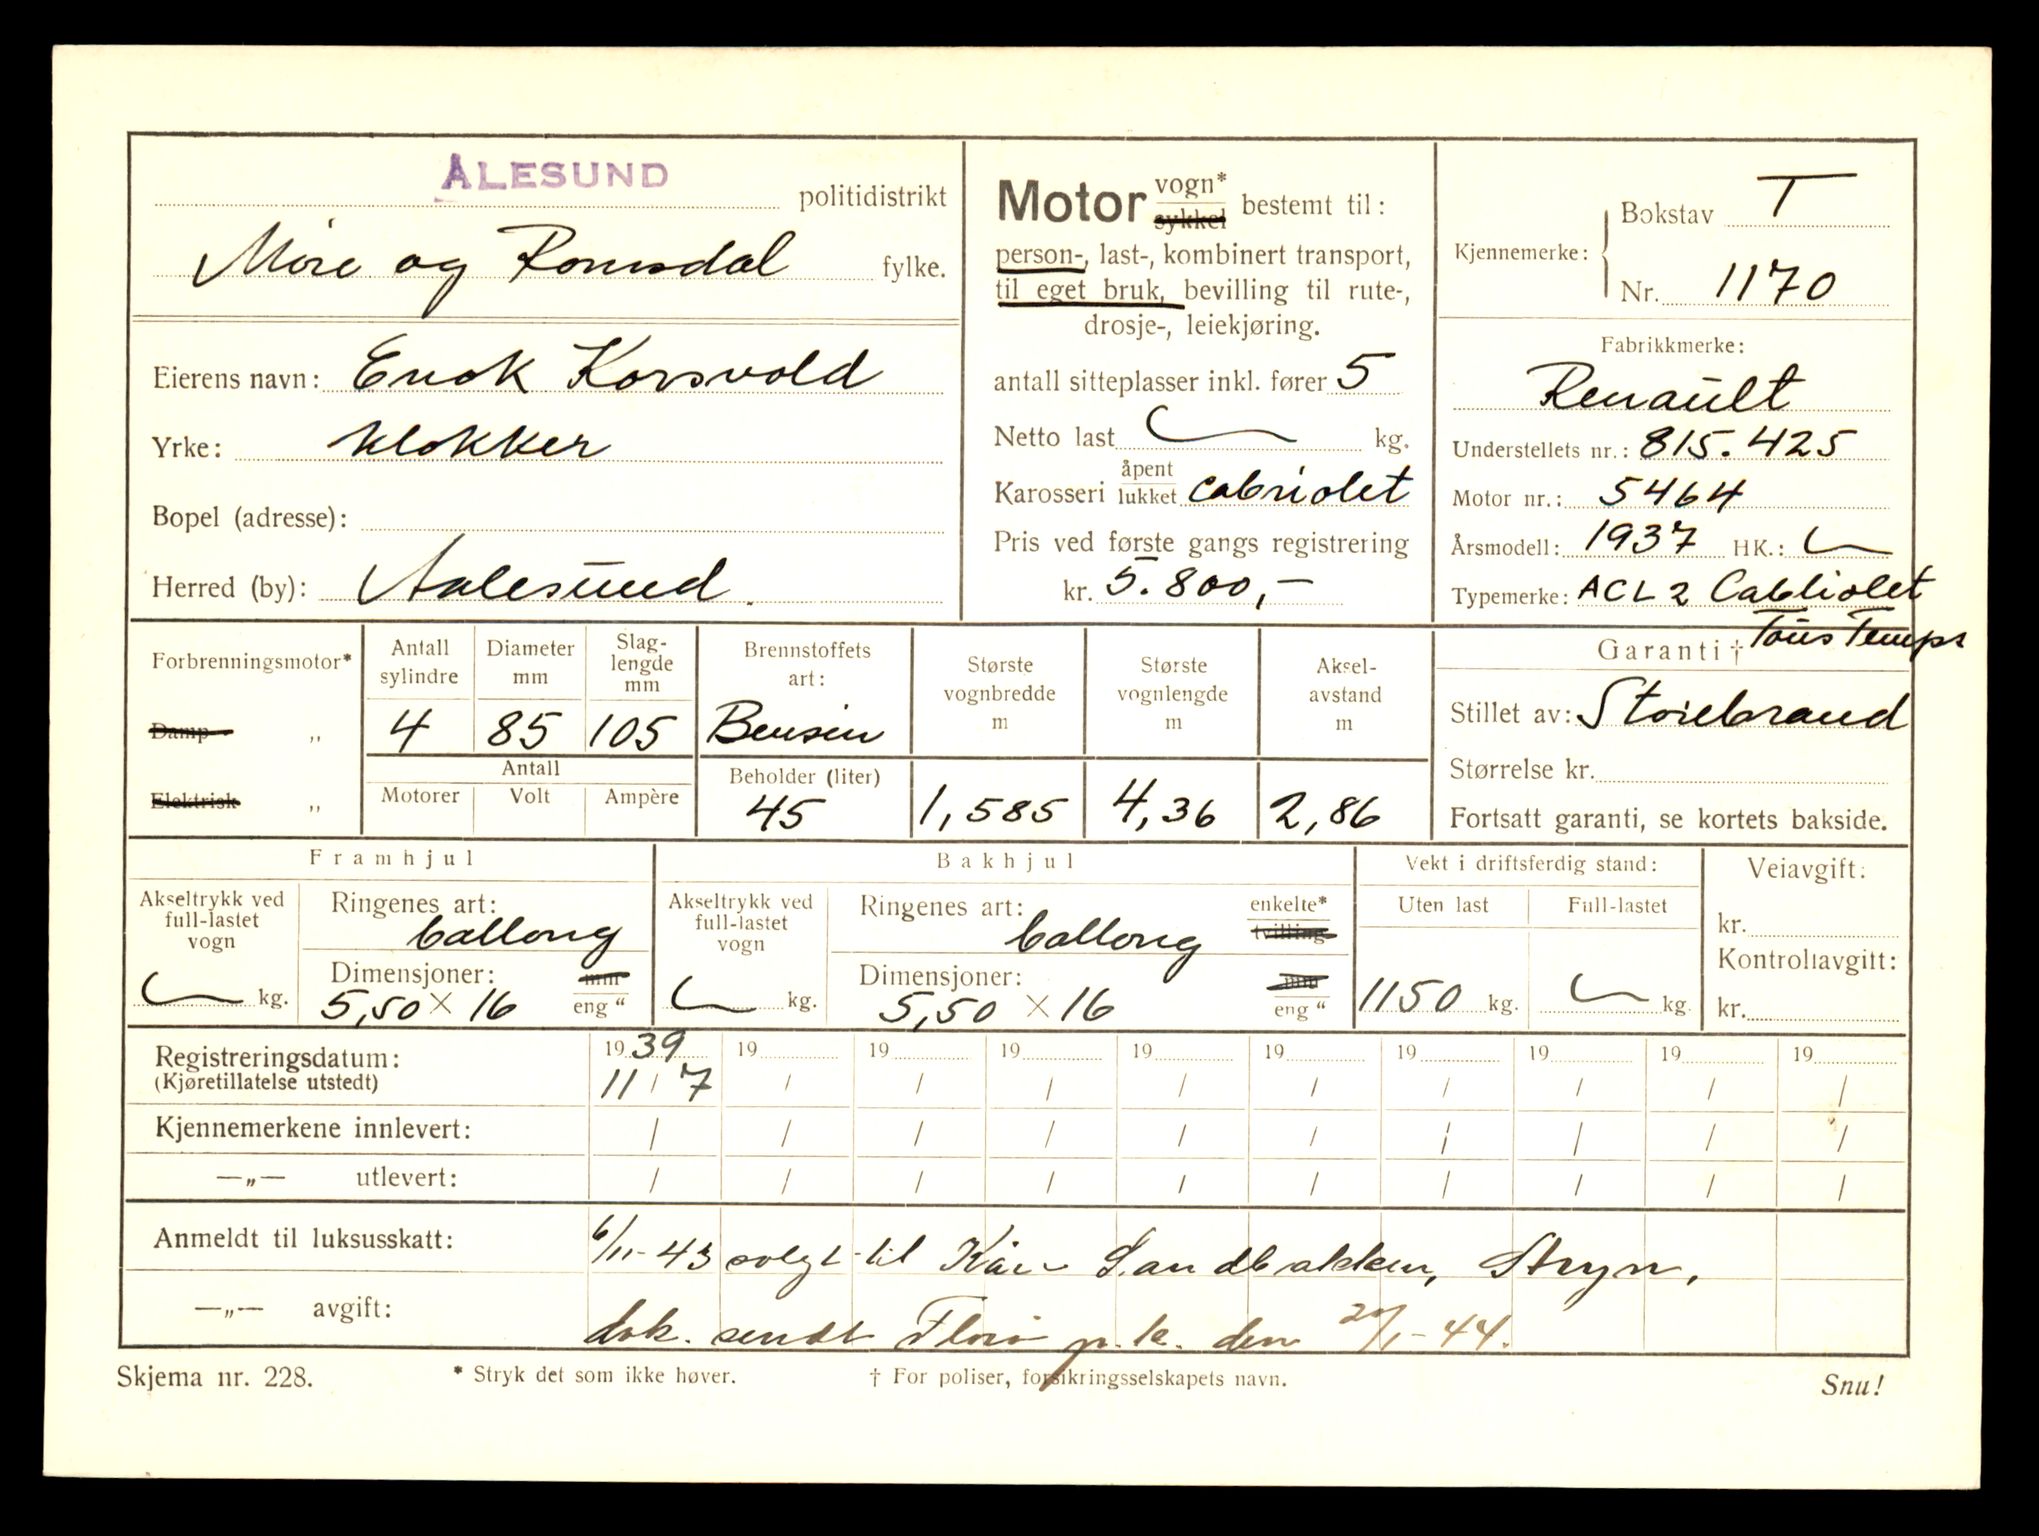 ÅLESUND politidistrikt
Möre og Romsdal fylke.
Eierens navn: Enok Korsvold
Yrke: klokker
Bopel (adresse):
Herred (by): Aalesund.
Motor vogn* sykkel bestemt til:
person-, last-, kombinert transport,
til eget bruk, bevilling til rute-,
drosje-, leiekjøring.
antall sitteplasser inkl. fører 5
Netto last kg.
Karosseri åpent lukket cabriolet
Pris ved første gangs registrering
kr. 5.800,-
Kjennemerke: Bokstav T
Nr. 1170
Fabrikkmerke:
Renault
Understellets nr.: 815.425
Motor nr.: 5464
Årsmodell: 1937 HK.:
Typemerke: ACL2 Cabliolet
Tous Temps
Garanti †
Stillet av: Storebrand
Størrelse kr.
Fortsatt garanti, se kortets bakside.
Forbrenningsmotor*
Damp „
Elektrisk „
Antall sylindre
4
Diameter mm
85
Slag-lengde mm
105
Antall
Motorer Volt Ampère
Brennstoffets art:
Bensin
Beholder (liter)
45
Største vognbredde m
1,585
Største vognlengde m
4,36
Aksel-avstand m
2,86
Framhjul
Akseltrykk ved full-lastet vogn
kg.
Ringenes art:
ballong
Dimensjoner: mm
5,50 × 16 eng "
Bakhjul
Akseltrykk ved full-lastet vogn
kg.
Ringenes art: enkelte*
ballong tvilling
Dimensjoner: mm
5,50 × 16 eng "
Vekt i driftsferdig stand:
Uten last Full-lastet
1150 kg. kg.
Veiavgift:
kr.
Kontrollavgift:
kr.
Registreringsdatum: 1939 19 19 19 19 19 19 19 19 19
(Kjøretillatelse utstedt) 11/7 / / / / / / / / /
Kjennemerkene innlevert: / / / / / / / / / /
—„— utlevert: / / / / / / / / / /
Anmeldt til luksusskatt: 6/11-43 solgt til Kåre Sandbakken, Stryn.
—„— avgift: dok. sendt Florö p.k. den 20/1-44.
Skjema nr. 228. * Stryk det som ikke høver. † For poliser, forsikringsselskapets navn. Snu!